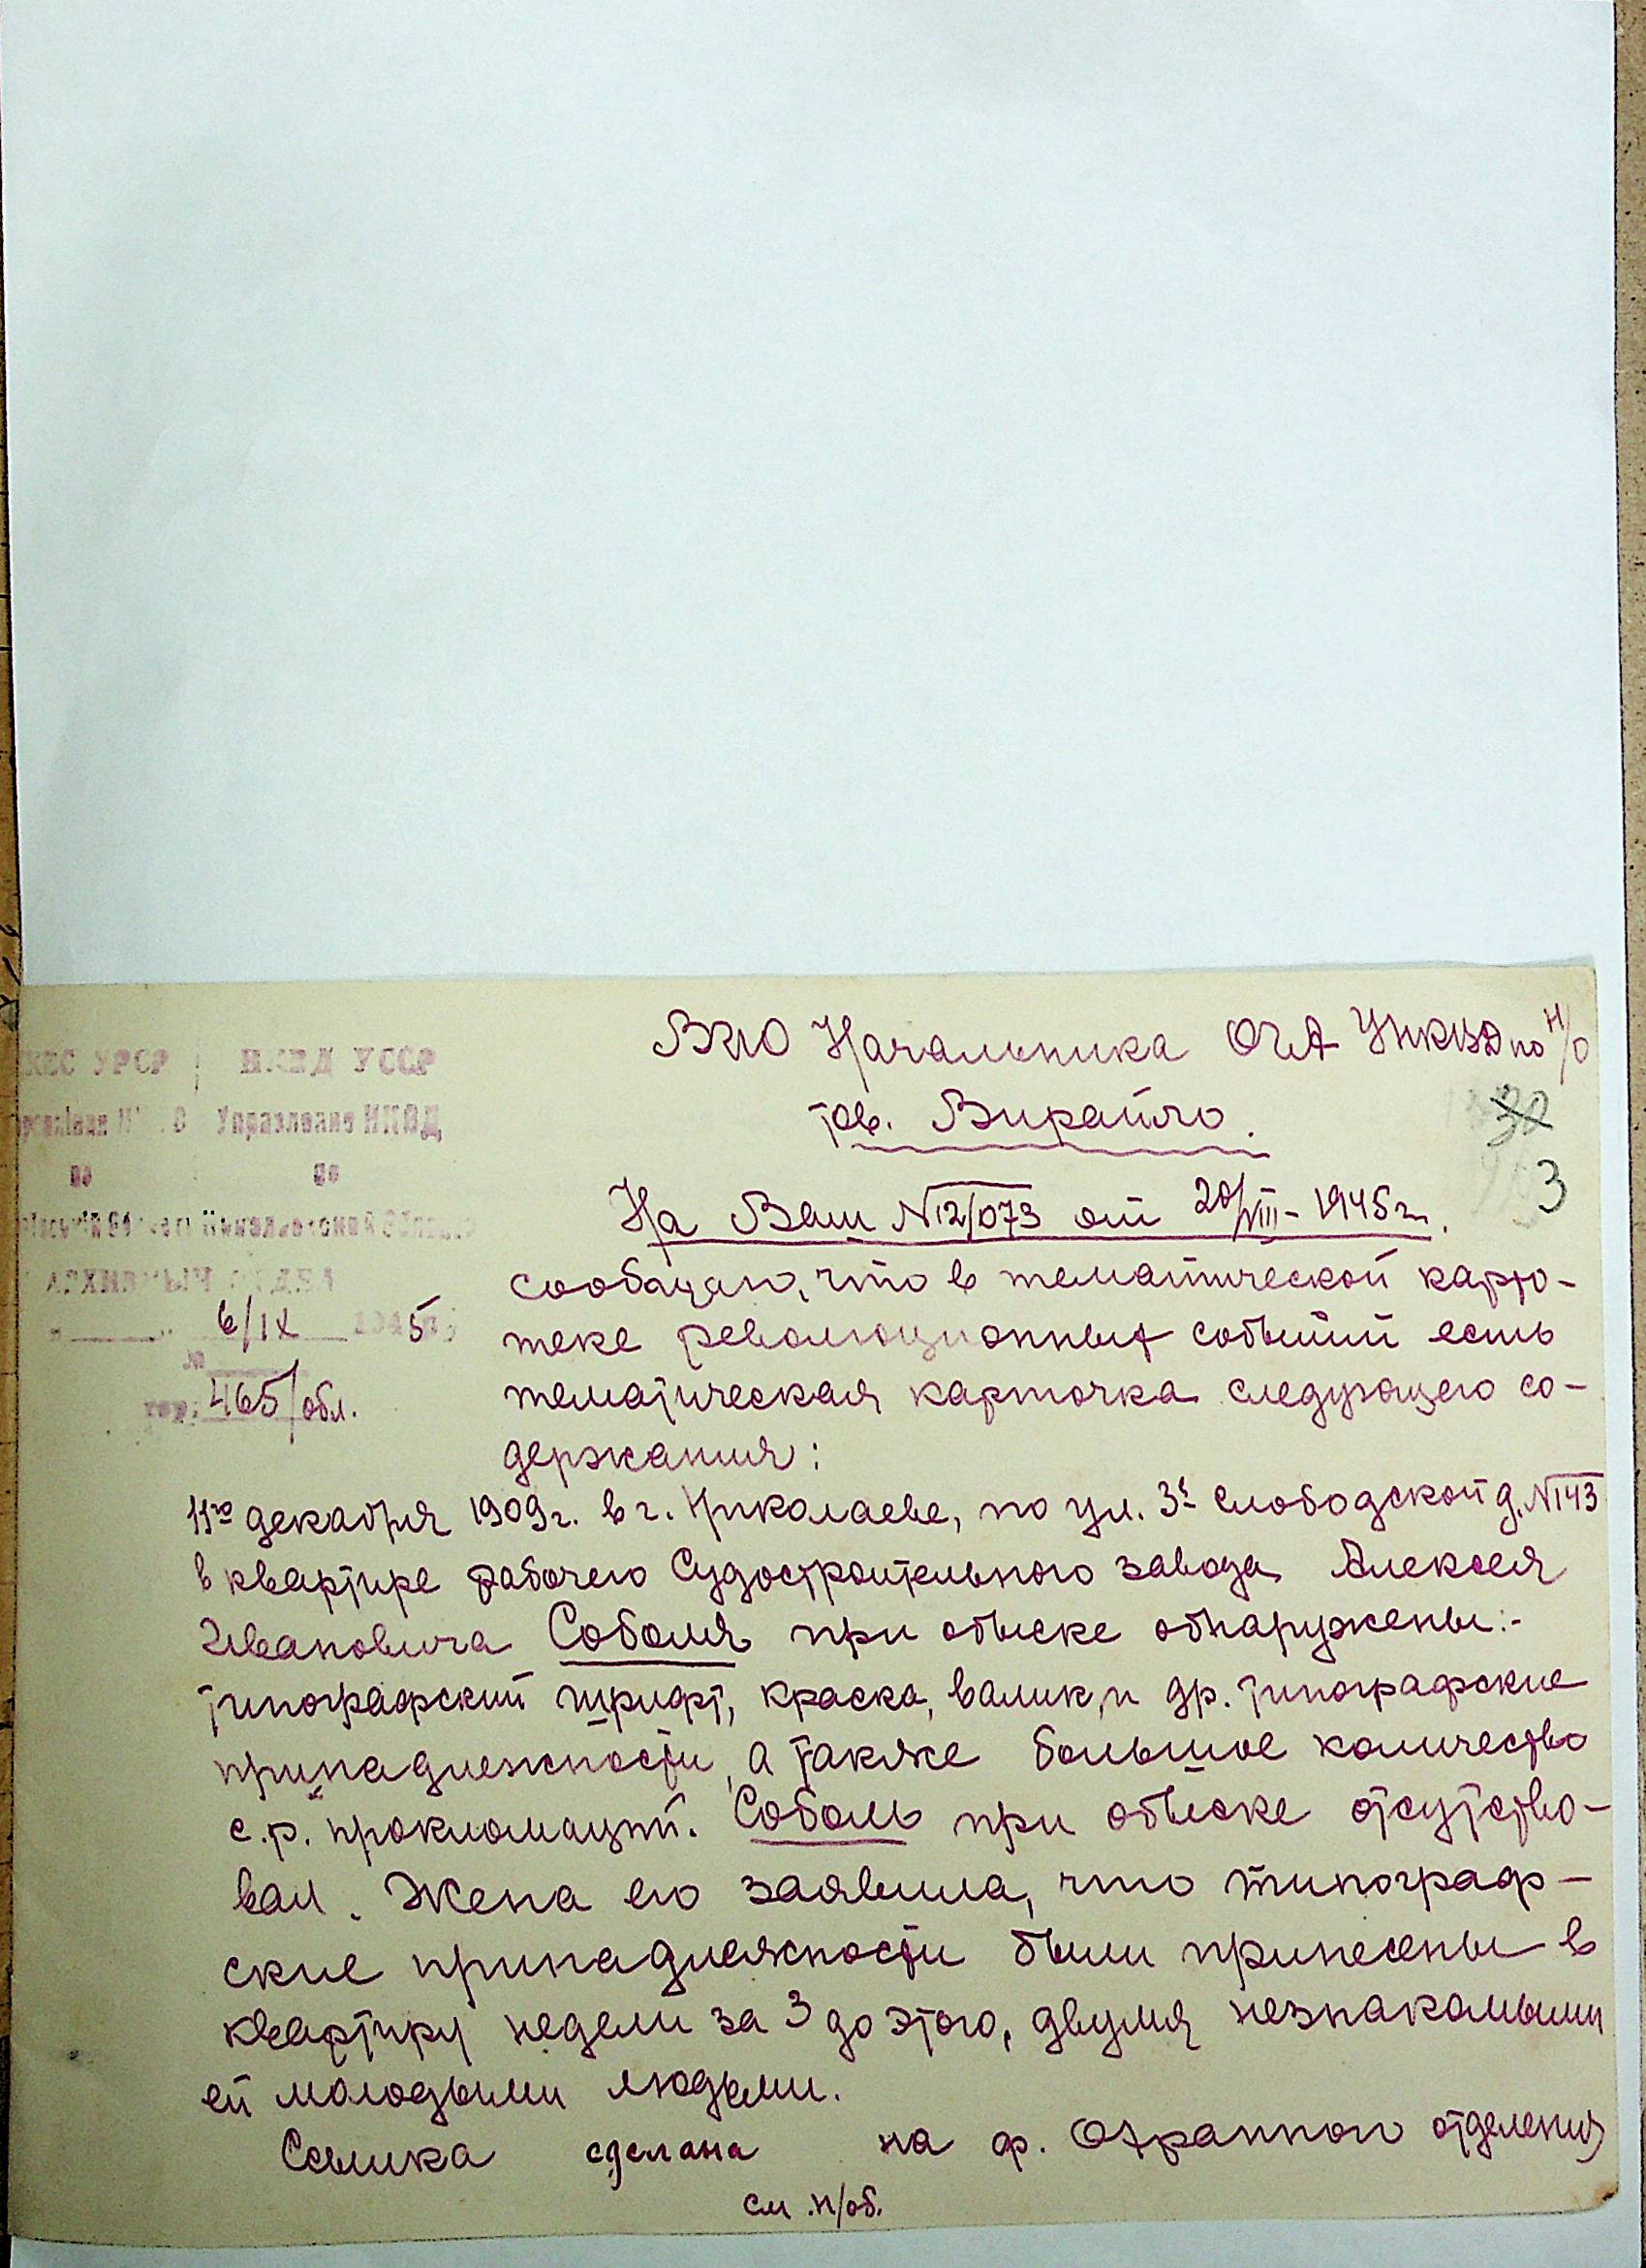 ВРИО Начальника ОГА УНКВД по Н/О
тов. Вирайло.
32
3
НКВД УССР
Управление НКВД
по
по
Николаевской Области
АРХИВНЫЙ ОТДЕЛ
6/IX 1945
№
465/обл.
На Ваш №12/073 от 20/VIII-1945г.
сообщаю, что в тематической карто-
теке революционных событий есть
тематическая карточка следующего со-
держания:
11го декабря 1909г. в г. Николаеве, по ул. 3й Слободской д. №143
в квартире рабочего Судостроительного завода Алексея
Ивановича Соболя при обыске обнаружены:-
типографский шрифт, краска, валик, и др. типографские
принадлежности, а также большое количество
с.р. прокломаций. Соболь при обыске отсутство-
вал. Жена его заявила, что типограф-
ские принадлежности были принесены в
квартиру недели за 3 до этого, двумя незнакомыми
ей молодыми людьми.
Ссылка сделана на ф. Охранного отделения
см. н/об.